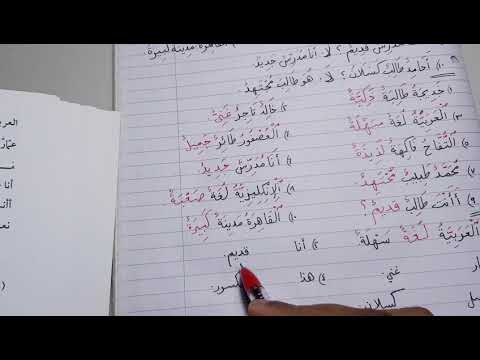 القاهرة مدينة كبيرة.
قديم؟ لا. أنا مدرس جديد.
١٠) أحامد طالب كسلان؟ لا. هو طالب مجتهد.
١) خديجة طالبة ذكية ٢) خالد تاجر غني.
٣) العربية لغة سهلة ٤) العصفور طائر جميل
٥) التفاح فاكهة لذيذة. ٦) أنا مدرس جديد.
٧) محمد طبيب مجتهد. ٨) الإنكليزية لغة صعبة.
٩) أأنت طالب قديم؟ ١٠) القاهرة مدينة كبيرة.
العربية لغة سهلة ٢) أنا قديم.
غني. ٤) هذا مكسور.
كسلان.
العر
أنا